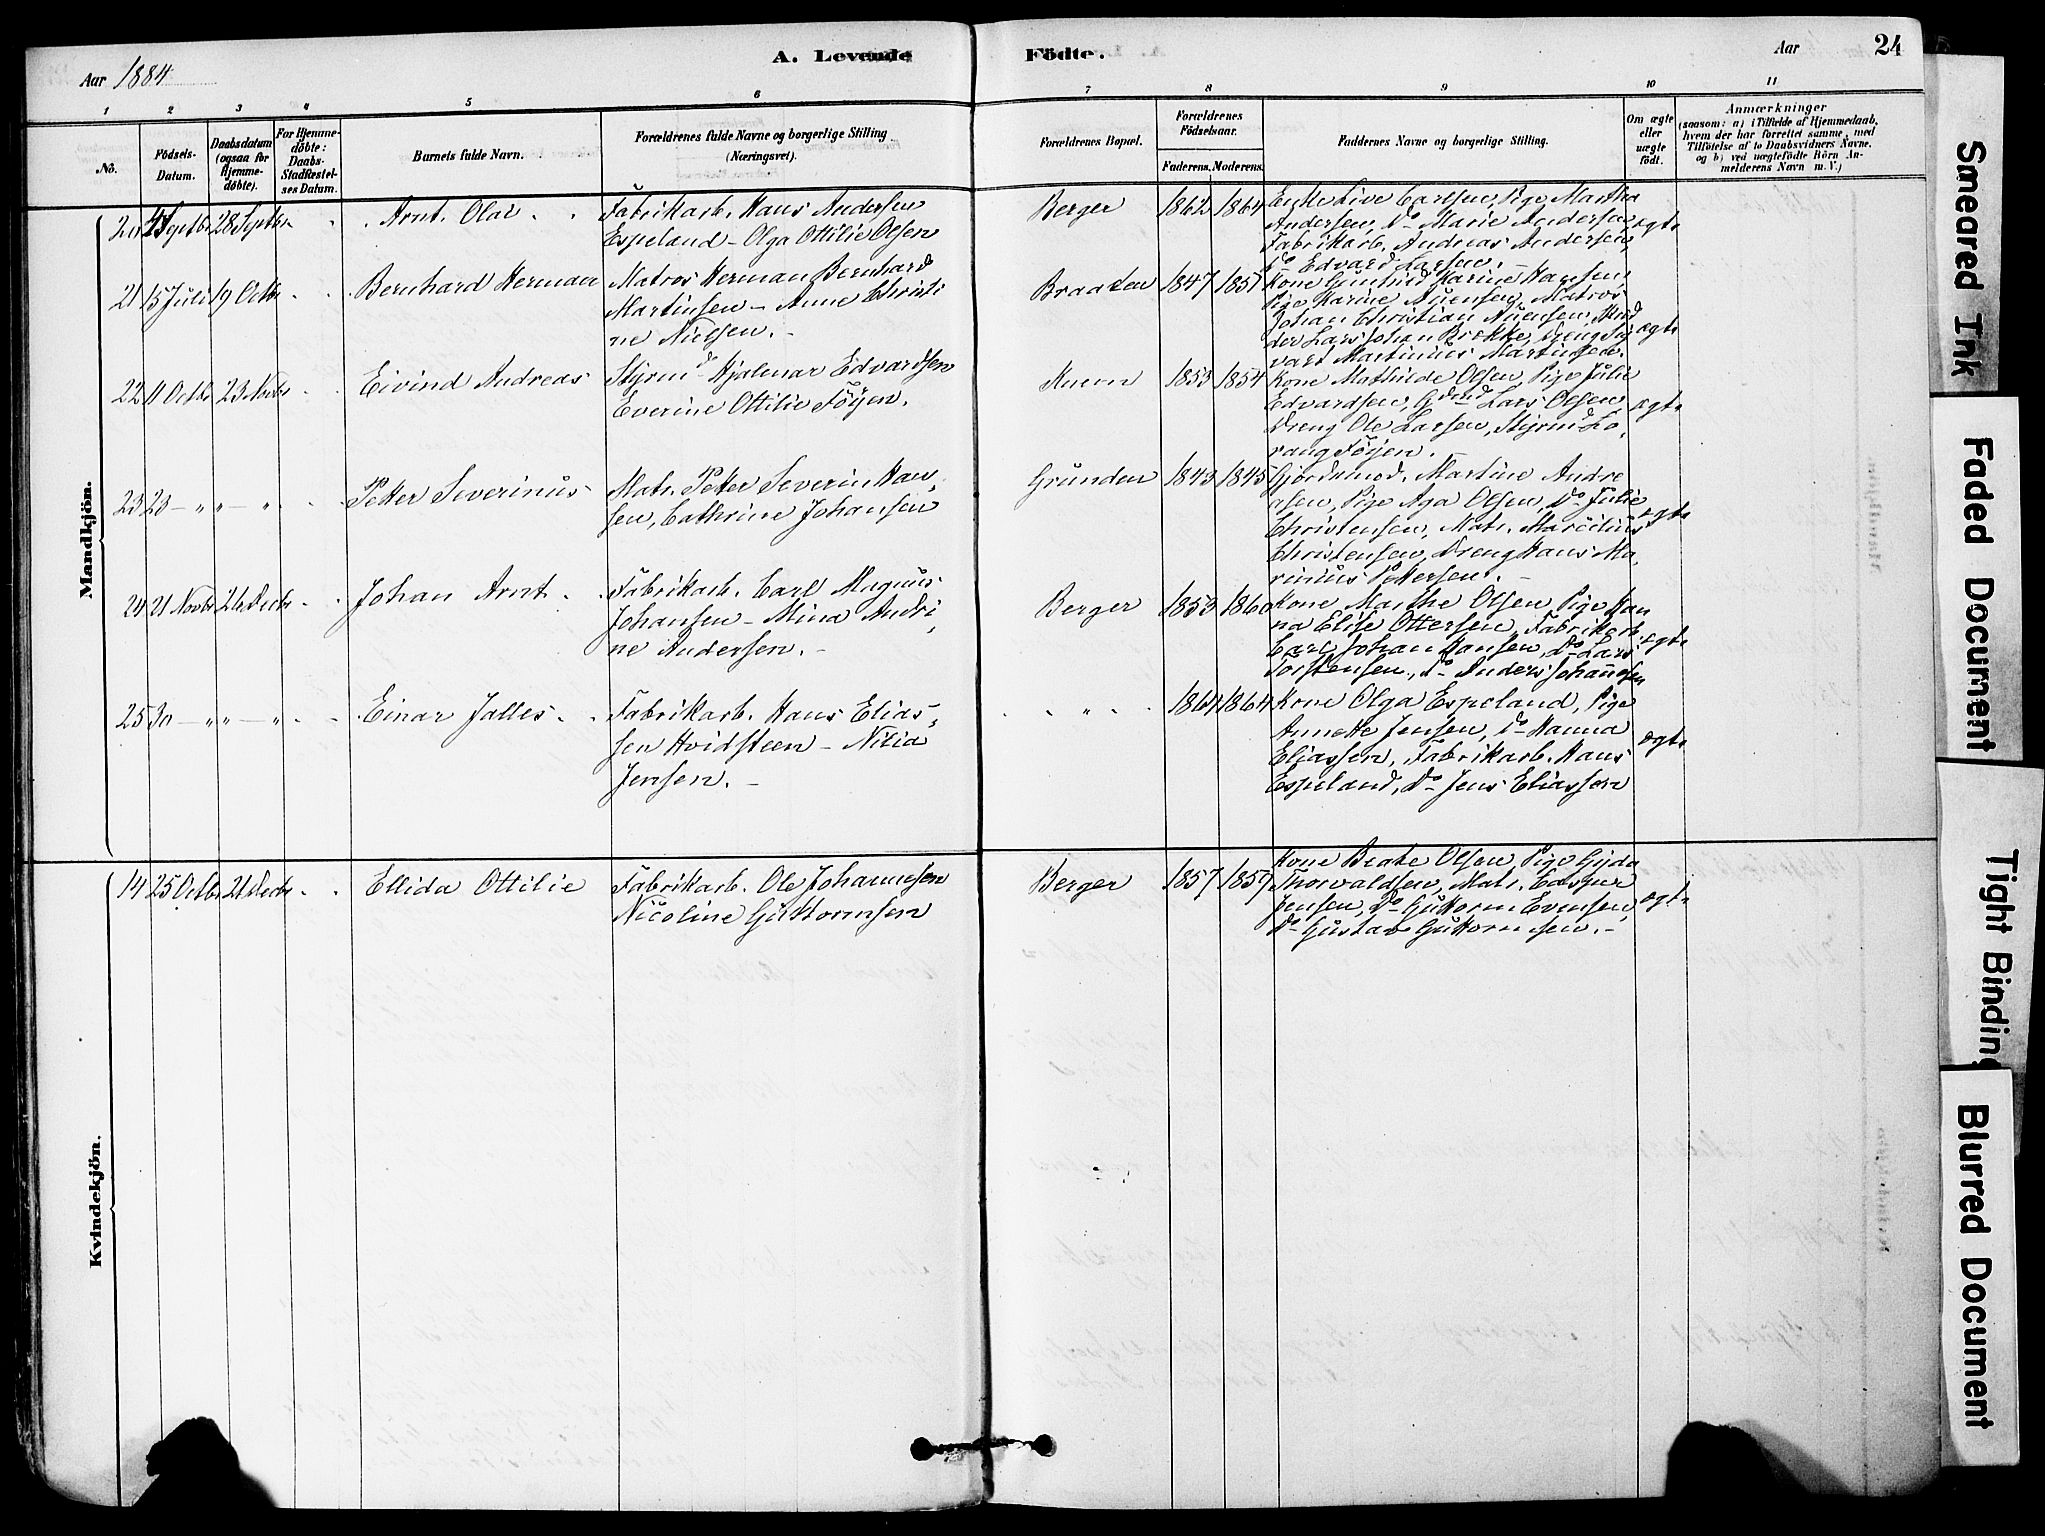 Aar 1884
A. Levende
Födte.
Aar
24
1 2 3 4 5 6
7 8 9 10 11
No.
Födsels-
Datum.
Daabsdatum
(ogsaa for
Hjemme-
döbte).
For Hjemme-
döbte:
Daabs-
Stadfæstel-
ses Datum.
Barnets fulde Navn.
Forældrenes fulde Navne og borgerlige Stilling
(Næringsvei).
Forældrenes Bopæl.
Forældrenes
Födselsaar.
Faderens. Moderens.
Faddernes Navne og borgerlige Stilling.
Om ægte
eller
uægte
födt.
Anmærkninger
(saasom: a) i Tilfælde af Hjemmedaab,
hvem der har forrettet samme, med
Tilföielse af to Daabsvidners Navne,
og b) ved uægtefödte Börn An-
melderens Navn m. V.)
Mandkjön.
20 Septbr 28 Septbr
Arnt Olav
Fabrikarb. Hans Andersen
Espeland - Olga Ottilie Olsen
Berger 1862 1864
Enke Live Carlsen, Pige Martha
Andersen, Do Marie Andersen,
Fabrikarb. Andreas Andersen,
Do Edvard Larsen.-
ægte
21 15 Juli 19 Octbr
Bernhard Herman
Matros Herman Bernhard
Martinsen - Anne Christi
ne Nielsen.-
Braaten 1847 1851
Kone Gunhild Karine Hansen,
Pige Karine Auensen, Matros
Johan Christian Auensen,
der Lars Johan Brekke, Dreng
vart Martinius Martinsen.
ægte
22 11 Octbr 23 Novbr
Eivind Andreas
Styrmd Hjalmar Edvardsen
Everine Ottilie Föyen.
Knem 1853 1854
Kone Mathilde Olsen, Pige Julie
Edvardsen, Lars Olsen,
Dreng Ole Larsen, Styrmd Lo,
rang Föyen.-
ægte
23 23 - " " - "
Petter Severinus
Matr. Petter Severin Han,
sen, Cathrine Johansen
Grunden 1843 1845
Gjordemod. Martine Andre
asen, Pige Aga Olsen, Do Julie
Christensen, Matr. Marcelius
Christensen, Dreng Hans Ma,
rinius Pettersen.-
ægte
24 21 Novbr 26 Decbr
Johan Arnt
Fabrikarb. Carl Magnus
Johansen - Mina Andri,
ne Andersen.-
Berger 1853 1860
Kone Marthe Olsen, Pige Han
na Elise Ottersen, Fabrikarb.
Carl Johan Hansen, Do Lars
Torstensen, Do Anders Johannesen
ægte
25 30 - " " - "
Einar Jalles
Fabrikarb. Hans Elias,
sen Hvidsteen - Nilia
Jensen.-
" 1861 1864
Kone Olga Espeland, Pige
Annette Jensen, Do Hanna
Eliassen, Fabrikarb. Hans
Espeland, Do Jens Eliassen
ægte
Kvindekjön.
14 25 Octbr 21 Decbr
Ellida Ottilie
Fabrikarb. Ole Johannesen
Nicoline Guttormsen
Berger 1857 1859
Kone Beate Olsen, Pige Gyda
Thorvaldsen, Matr. Casper
Jensen, Do Guttorm Evensen,
Do Gustav Guttormsen.-
ægte
Smeared Ink
Faded Document
Tight Binding
Blurred Document